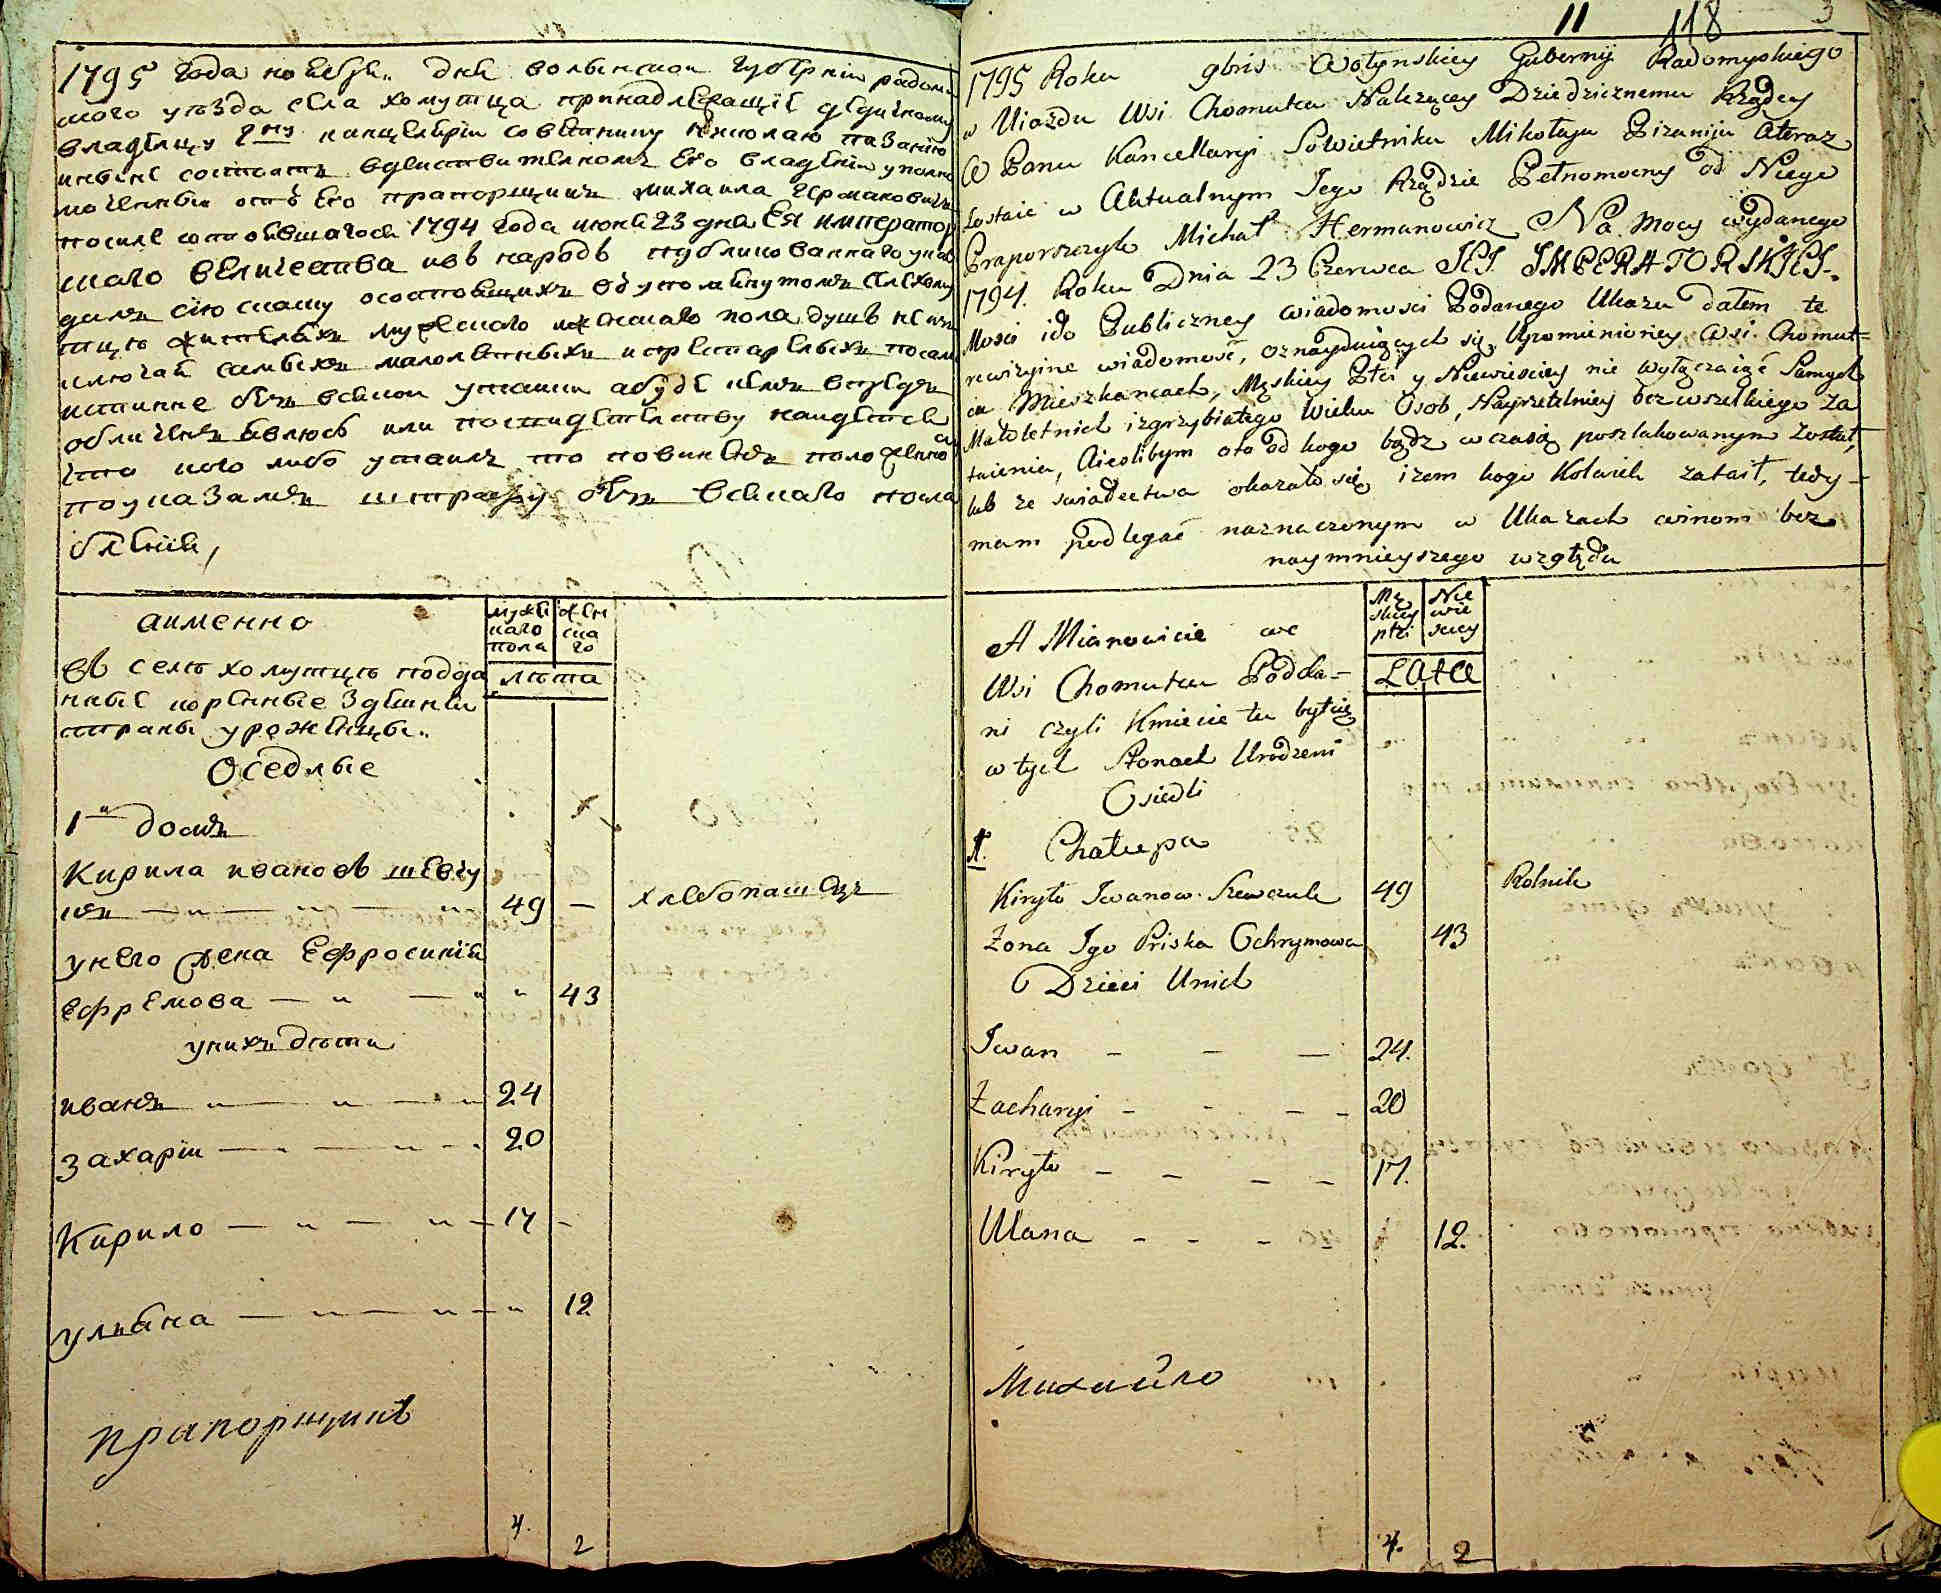 1795 года ноября дня волынской губерніи радомы
слого уѣзда села хомутца принадлежащіе дедичному
владелцу гну канцеляріи советнику николаю пизанію
ныне состоятъ вдействителномъ его владеніи уполно
моченный отъ его прапорщикъ михаила германовичъ
посиле состоявшагося 1794 года июня 23 дня Ея император
скаго величества изъ народъ публикованнаго указа
даемъ сию скаску осостоящихъ въ упомянутомъ селе хому
тцѣ жителяхъ мужескаго и женскаго пола душъ не из
ключая самыхъ малолетныхъ и престарелыхъ посамои
истинне безъ всякои утаики абуде кемъ впредь
обличенъ явлюсь или посвидетелству наидется
что кого либо утаилъ то повиненъ положенному
поуказамъ штрафу безъ всякаго посла
бленія,
аименно
мужескаго пола
женскаго
лѣта
въ селѣ хомутцѣ подда
нные коренные здешнеи
страны уроженцы
Оседлые
1й домъ
Кирила ивановъ шевчу
къ 49 — хлебопашецъ
у него жена Ефросинія
ефремова 43
унихъ дѣти
иванъ 24
захаріи 20
Кирило 17 -
ульяна 12
прапорщикъ
4. 2
11 118 3
1795 Roku 9bris Wołynskiey Gubernij Radomyskiego
w Uiazdu Wsi Chomutca Należącey Dziedzicznemu Rządcy
W Panu Kancellaryi Sowietniku Mikołaju Pizaniju Ateraz
zostaie w Aktualnym Jego Rządzie Pełnomocny od Niego
Praporszczyk Michał Hermanowicz Na Mocy wydanego
1794. Roku Dnia 23 Czerwca JEJ IMPERATORSKIEJ
Mosci ido Publiczney wiadomosci Podanego Ukazu datem te
rewizyine wiadomość, oznayduiących się Upomienioney Wsi Chomut=
cu Mieszkancach, Męskiey Płci y Niewiesciey nie wyłączaiąc Samych
Małoletnich izgrzybiałego Wieku Osob, Nayrzetelniey bez wszelkiego Za
taienia, Aieslibym oto od kogo bądz w czasie poszlakowanym Został,
lub ze swiadectwa okazało się izem kogo Kolwiek zataił, tedy -
mam podlegać naznaczonym w Ukazach winom bez
naymnieyszego względu
A Mianowicie we
Męskiey płci
Niewiesciey
Lata
Wsi Chomutcu Podda=
ni czyli Kmiecie tu bytnie
w tych Stonach Urodzeni
Osiedli
1. Chałupa
Kiryło Iwanow Szewczuk 49 Rolnik
Żona Jgo Priska Ochrymowa 43
Dzieci Unich
Iwan - - - 24.
Zacharyi - - - - 20
Kiryło - - - - 17.
Ulana - - - 12.
Михайло
4. 2